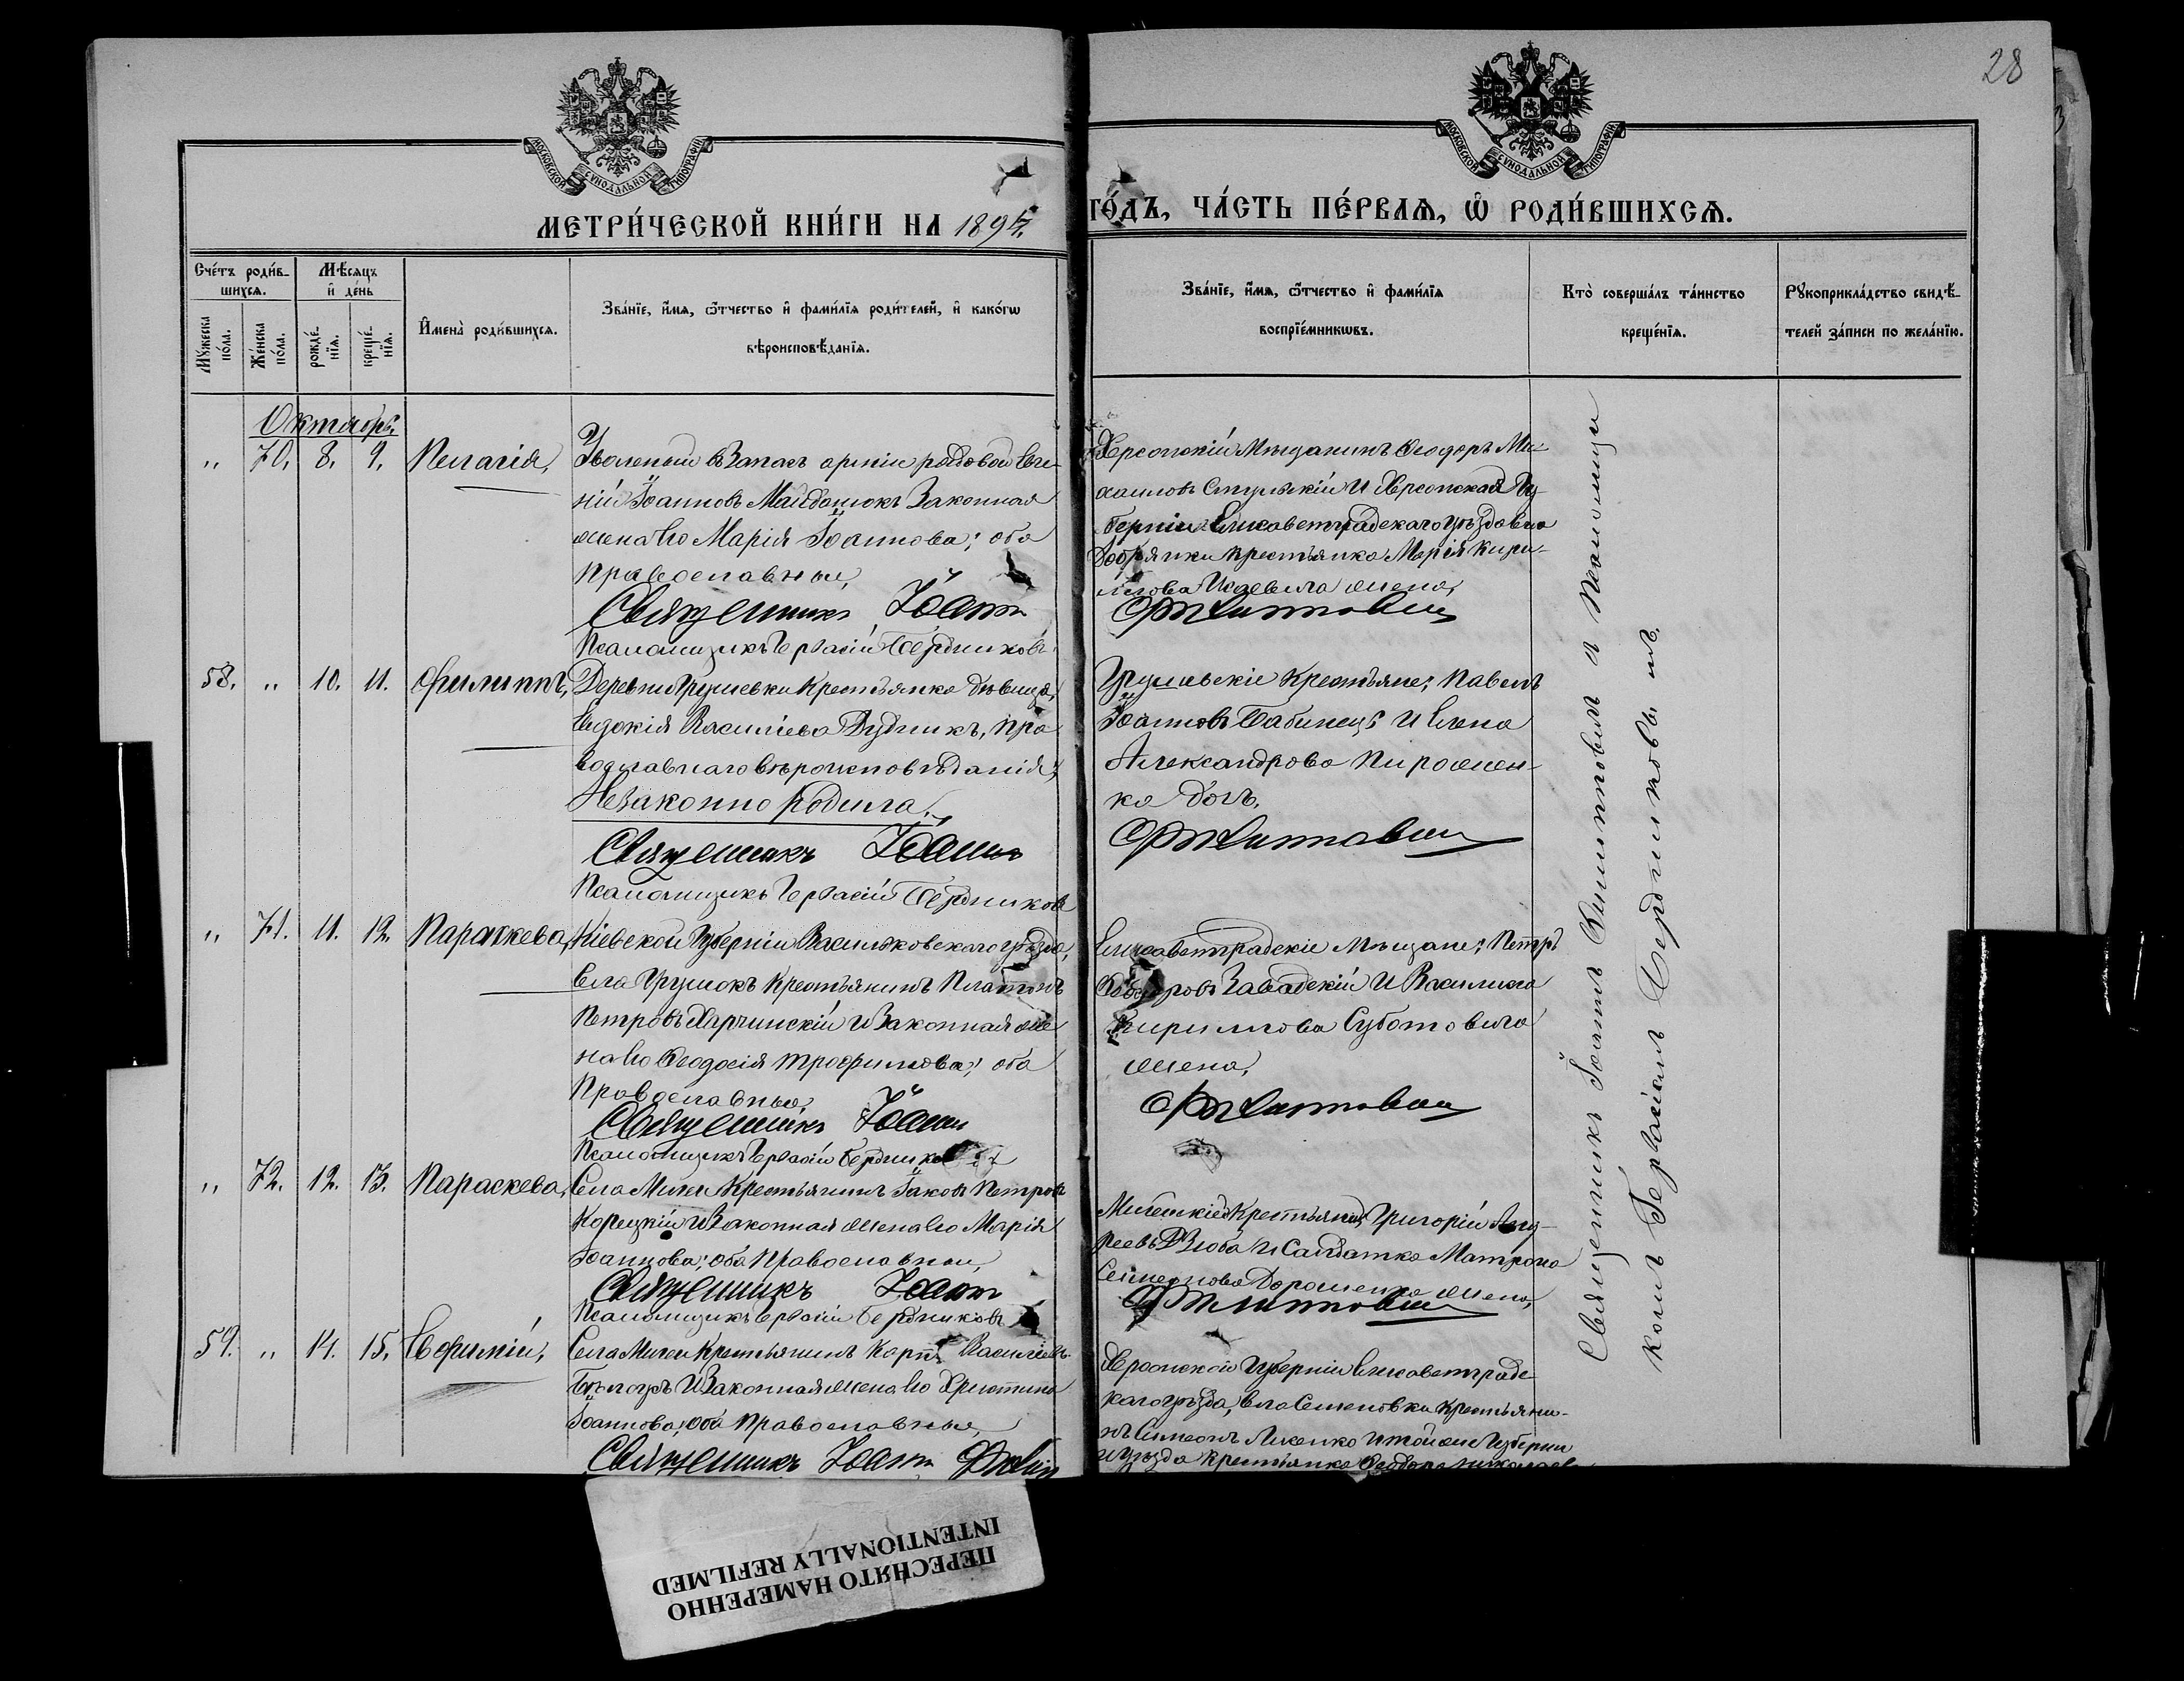 28
МОСКОВСКОЙ СѴНОДАЛЬНОЙ ТИПОГРАФІИ
МОСКОВСКОЙ СѴНОДАЛЬНОЙ ТИПОГРАФІИ
МЕТРИ́ЧЕСКОЙ КНИ́ГИ НА 1895.
ГО́ДЪ, ЧА́СТЬ ПЕ́РВАѦ, Ѡ҆ РОДИ́ВШИХСѦ.
Сче́тъ роди́вшихсѧ.
Мѣ́сѧцъ и҆ де́нь
И҆мена̀ роди́вшихсѧ.
Зва́нїе, и҆́мѧ, ѻ҆́тчество и҆ фами́лїѧ роди́телей, и҆ како́гѡ
вѣроисповѣ́данїѧ.
Мꙋ́жеска по́ла.
Же́нска по́ла.
рожде́нїѧ.
креще́нїѧ.
Зва́нїе, и҆́мѧ, ѻ҆́тчество и҆ фами́лїѧ
воспрїе́мникѡвъ.
Кто̀ соверша́лъ та́инство
креще́нїѧ.
Рꙋкоприкла́дство свидѣ́-
телей за́писи по жела́нїю.
Октябрь
„ 70. 8. 9. Пелагія,
Уволеный въ Запасъ арміи рядовой Евге-
ній Іоанновъ Майданюкъ Законная
жена Его Марія Іоаннова; оба
православные,
Священникъ Іоаннъ
Псаломщикъ Гервасій Бердниковъ.
Херсонскій Мѣщанинъ Ѳеодоръ Ми-
хаиловъ и Херсонской Гу-
берніи Елисаветградскаго уѣзда села
Добрянки крестьянка Марія Кири-
лова жена,
Филипповичъ
58. „ 10. 11. Филиппъ,
Деревни Грушевки Крестьянка дѣвица,
Евдокія Василіева Дудникъ, Пра
вославнаго вѣроисповѣданія;
Незаконно родила.
Священникъ Іоаннъ
Псаломщикъ Гервасій Бердниковъ
Грушевскіе Крестьяне; Павелъ
Іоанновъ Бабинецъ и Елена
Александрова Пироженко
ко дочь.
Филипповичъ
„ 71. 11. 12. Параскева,
Кіевской Губерніи Васильковскаго уѣзда,
села Грушокъ Крестьянинъ Платонъ
Петровъ Харчинскій и Законная же
на Его Ѳеодосія Трофимова; оба
Православные,
Священникъ Іоаннъ
Псаломщикъ Гервасій Бердниковъ
Елисаветградскіе Мѣщане; Петръ
Завадскій и Василиса
Кирилова Суботовила
жена,
Филипповичъ
„ 72. 12. 13. Параскева,
Села Мигеи Крестьянинъ Іаковъ Петровъ
Корецкій и Законная жена Его Марія
Іоаннова; оба Православные,
Священникъ Іоаннъ
Псаломщикъ Гервасій Бердниковъ
Мигейскіе Крестьяне Григорій Анд-
реевъ Дзюба и Салдатка Матрона
Семенова Дорошенко жена,
Филипповичъ
59. „ 14. 15. Евфимій,
Села Мигеи Крестьянинъ Карпъ Василіевъ
Бѣлоусъ и Законная жена Его Христина
Іоаннова; оба Православные,
Священникъ Іоаннъ
Херсонской Губерніи Елисаветград-
скаго уѣзда, села Семеновки Крестьяни-
нъ Симеонъ Лисенко и той же Губерніи
и уѣзда крестьянка Ѳеодора
Священникъ Іоаннъ Филипповичъ и Псаломщи
комъ Гервасіемъ Бердниковымъ.
ПЕРЕСНЯТО НАМЕРЕННО
INTENTIONALLY REFILMED